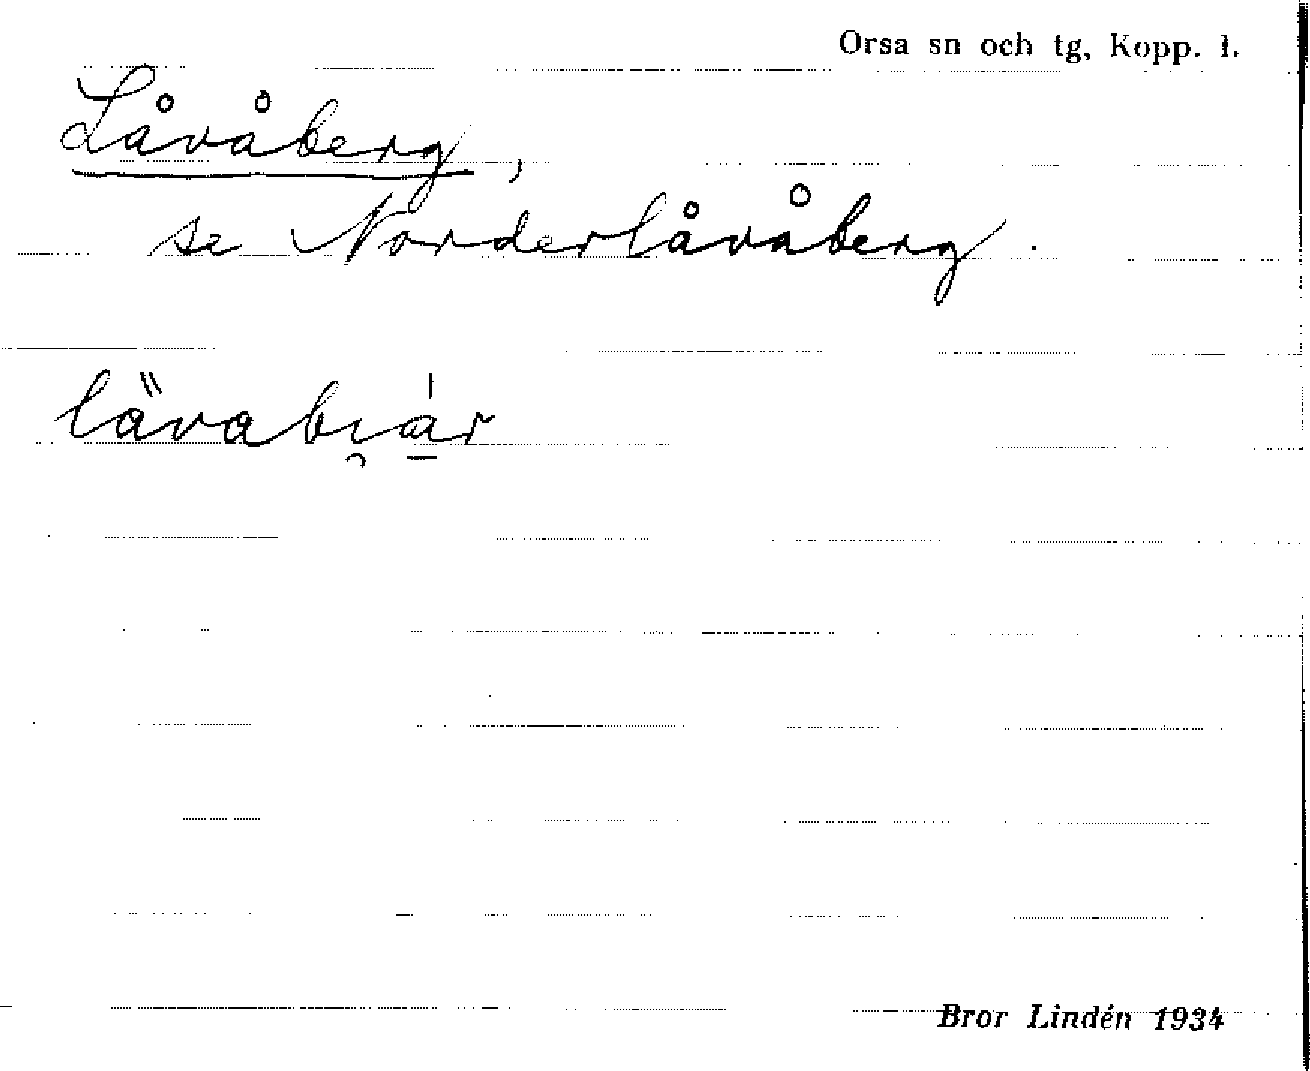 Orsa sn och tg, Kopp. l.
Låvåberg,
se Norderlåvåberg.
lävabı̯a̱̍r
Bror Lindén 1934